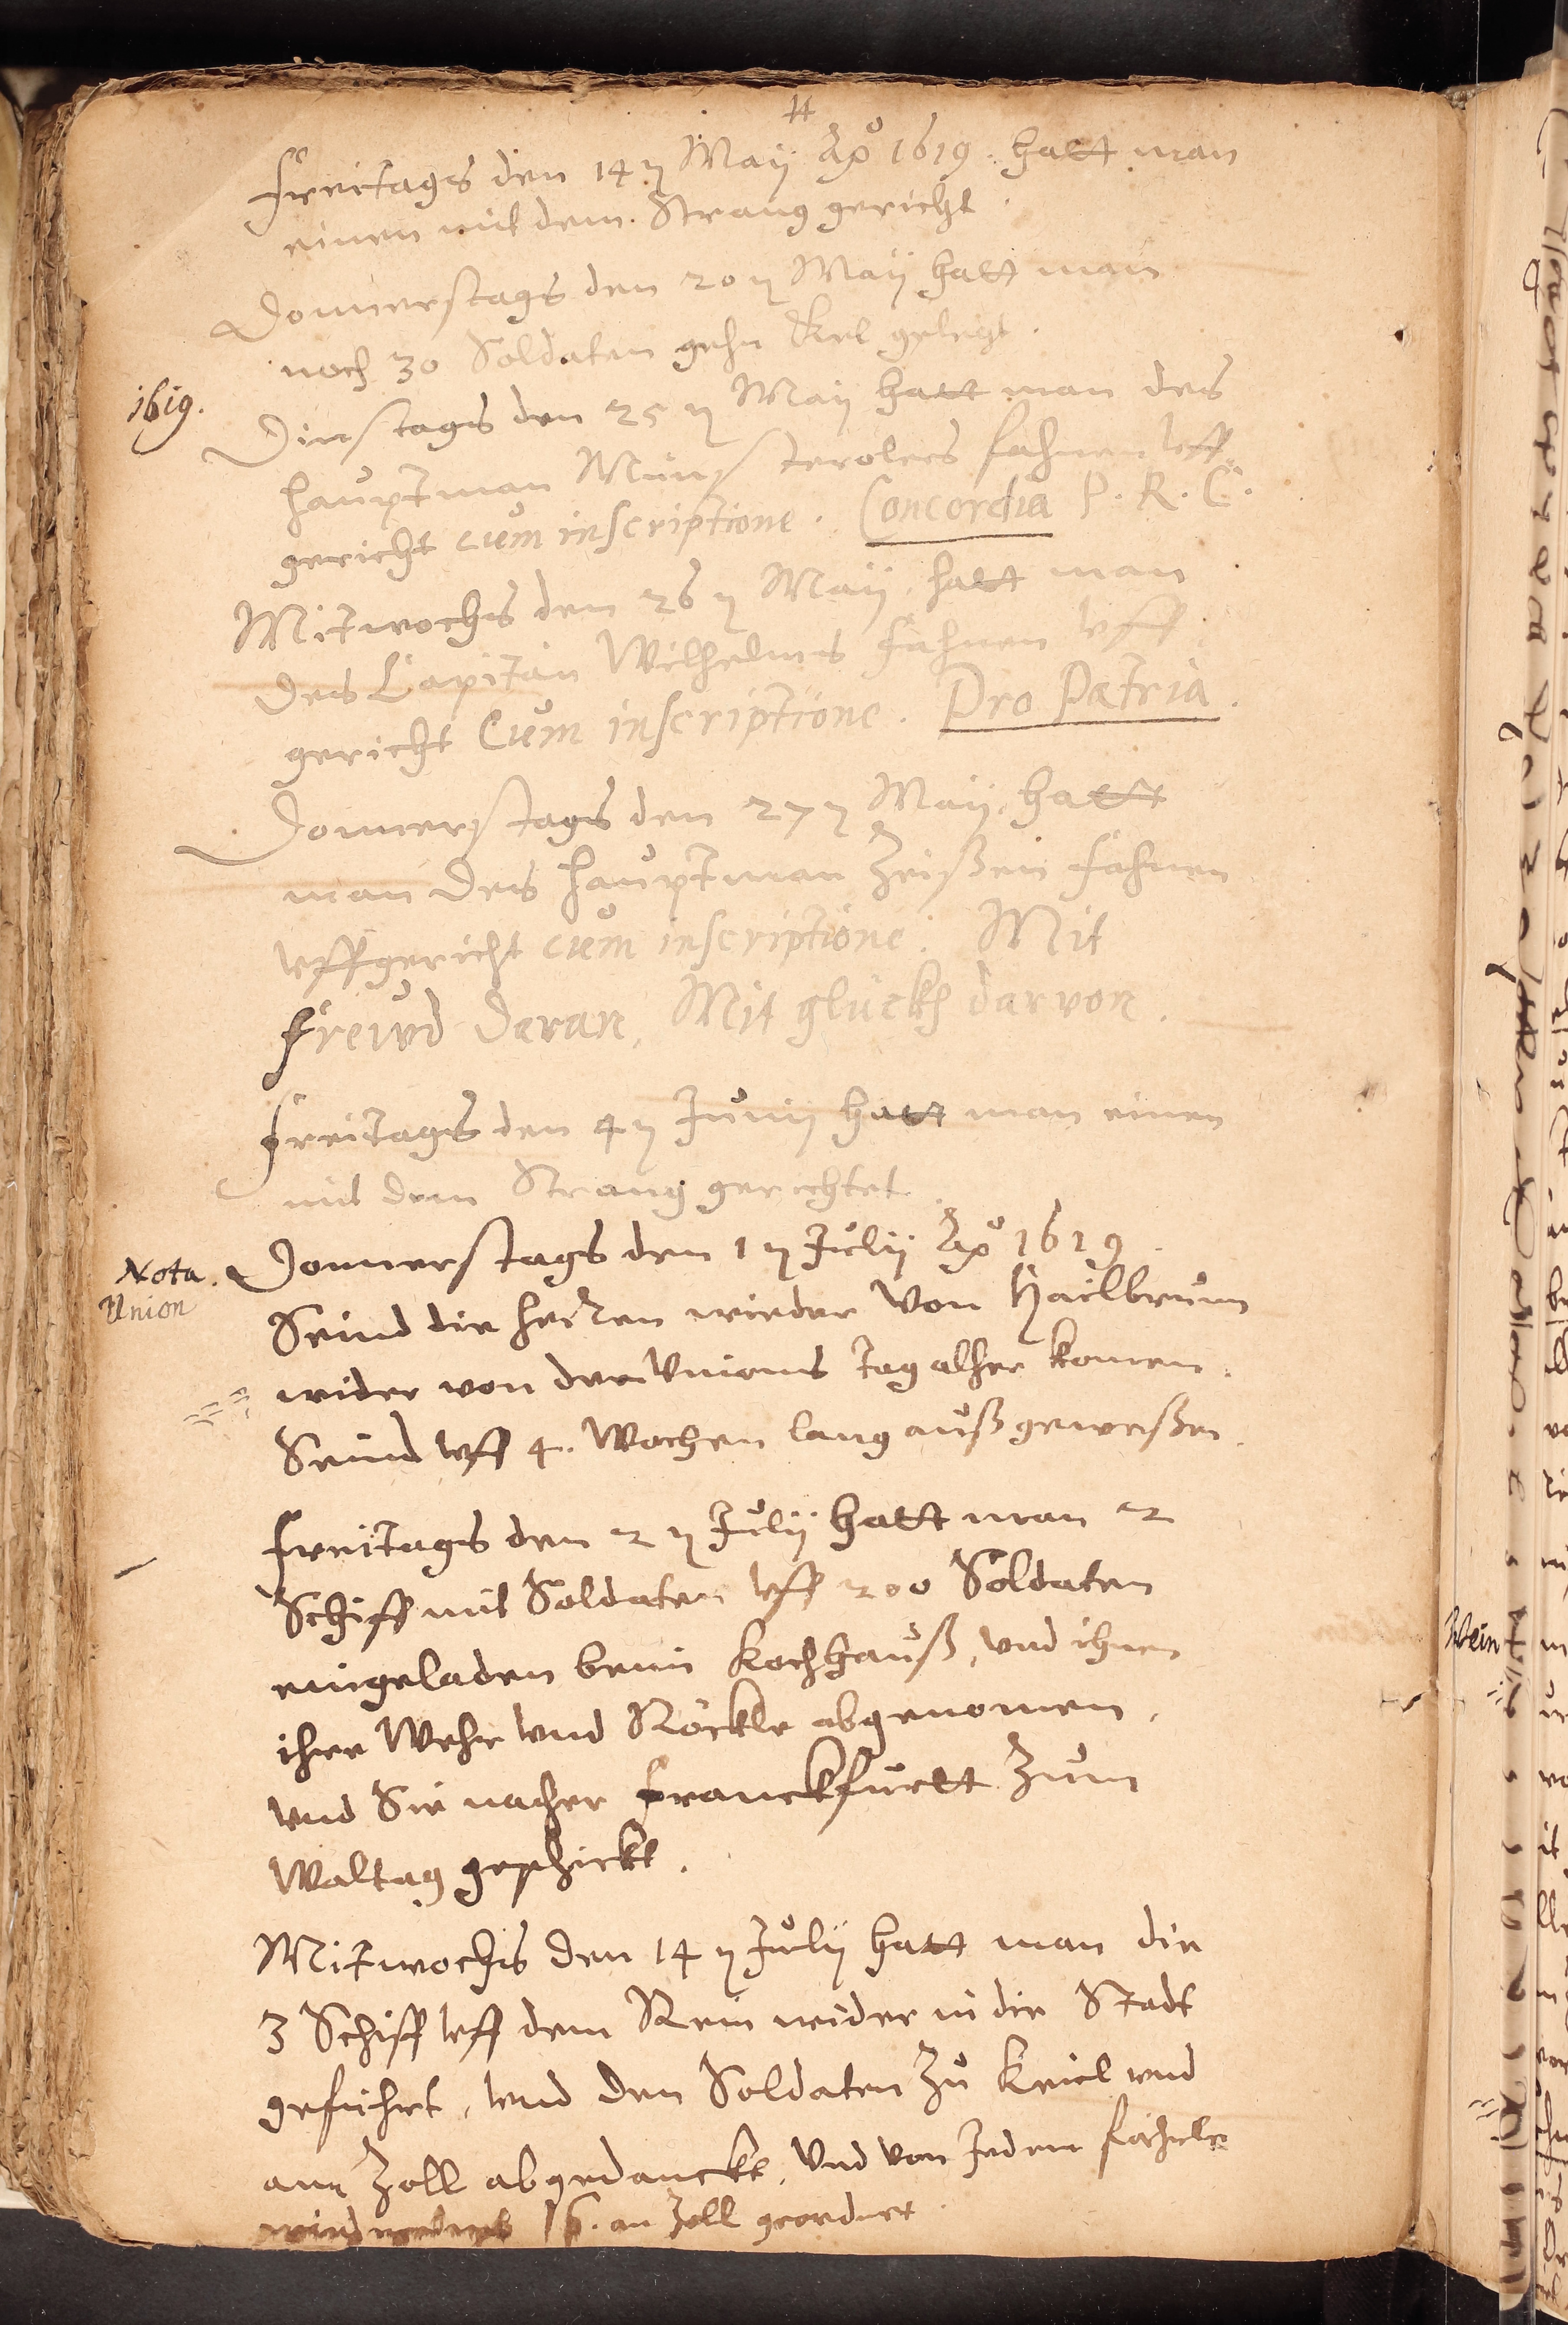 Freitags den 14 ₎ Maÿ Aõ 1619. hatt man
einen mit dem Strang gericht.
Donnerstags den 20 ₎ Maÿ hatt man
noch 30 Soldaten gehn Kel gelegt.
1619.
Dinstags den 25 ₎ Maÿ hatt man des
hauptman Münsterolers fahnen vff
gericht cum inscriptione. Concordia P. R. C.
Mitwochs den 26 ₎ Maÿ. hatt man
des Capitän Wilhelms fahnen vff
gericht Cum inscriptione. Pro Patria.
Donnerstags den 27 ₎ Maÿ. hatt
man des hauptman Zeißen fahnen
vffgericht cum inscriptione. Mit
frewd daran, Mit glückh darvon.
Freitags den 4 ₎ Junÿ hatt man einen
mit dem Strang gerichtet.
Nota.
Union
Donnerstags den 1 ₎ Julÿ Aõ 1619
Seind die herren wieder von Hailbrunn
wider von der Unions tag alher komen.
Seind vff 4. Wochen lang auß geweßen.
Freitags den 2 ₎ Julÿ hatt man 2
Schiff mit Soldaten vff 200 Soldaten
eingeladen beim Kochhauß, vnd ihnen
ihre Wehr vnd Röckle abgenomen,
vnd Sie nacher Franckfurtt Zum
Waltag geschickt.
Mitwochs den 14 ₎ Julÿ hatt man die
3 Schiff vff dem Rein wider in die Stadt
geführt, vnd den Soldaten Zu Keiel vnd
am Zoll abgedanckt, Vnd von Jedem
16. an Zoll geordnet.